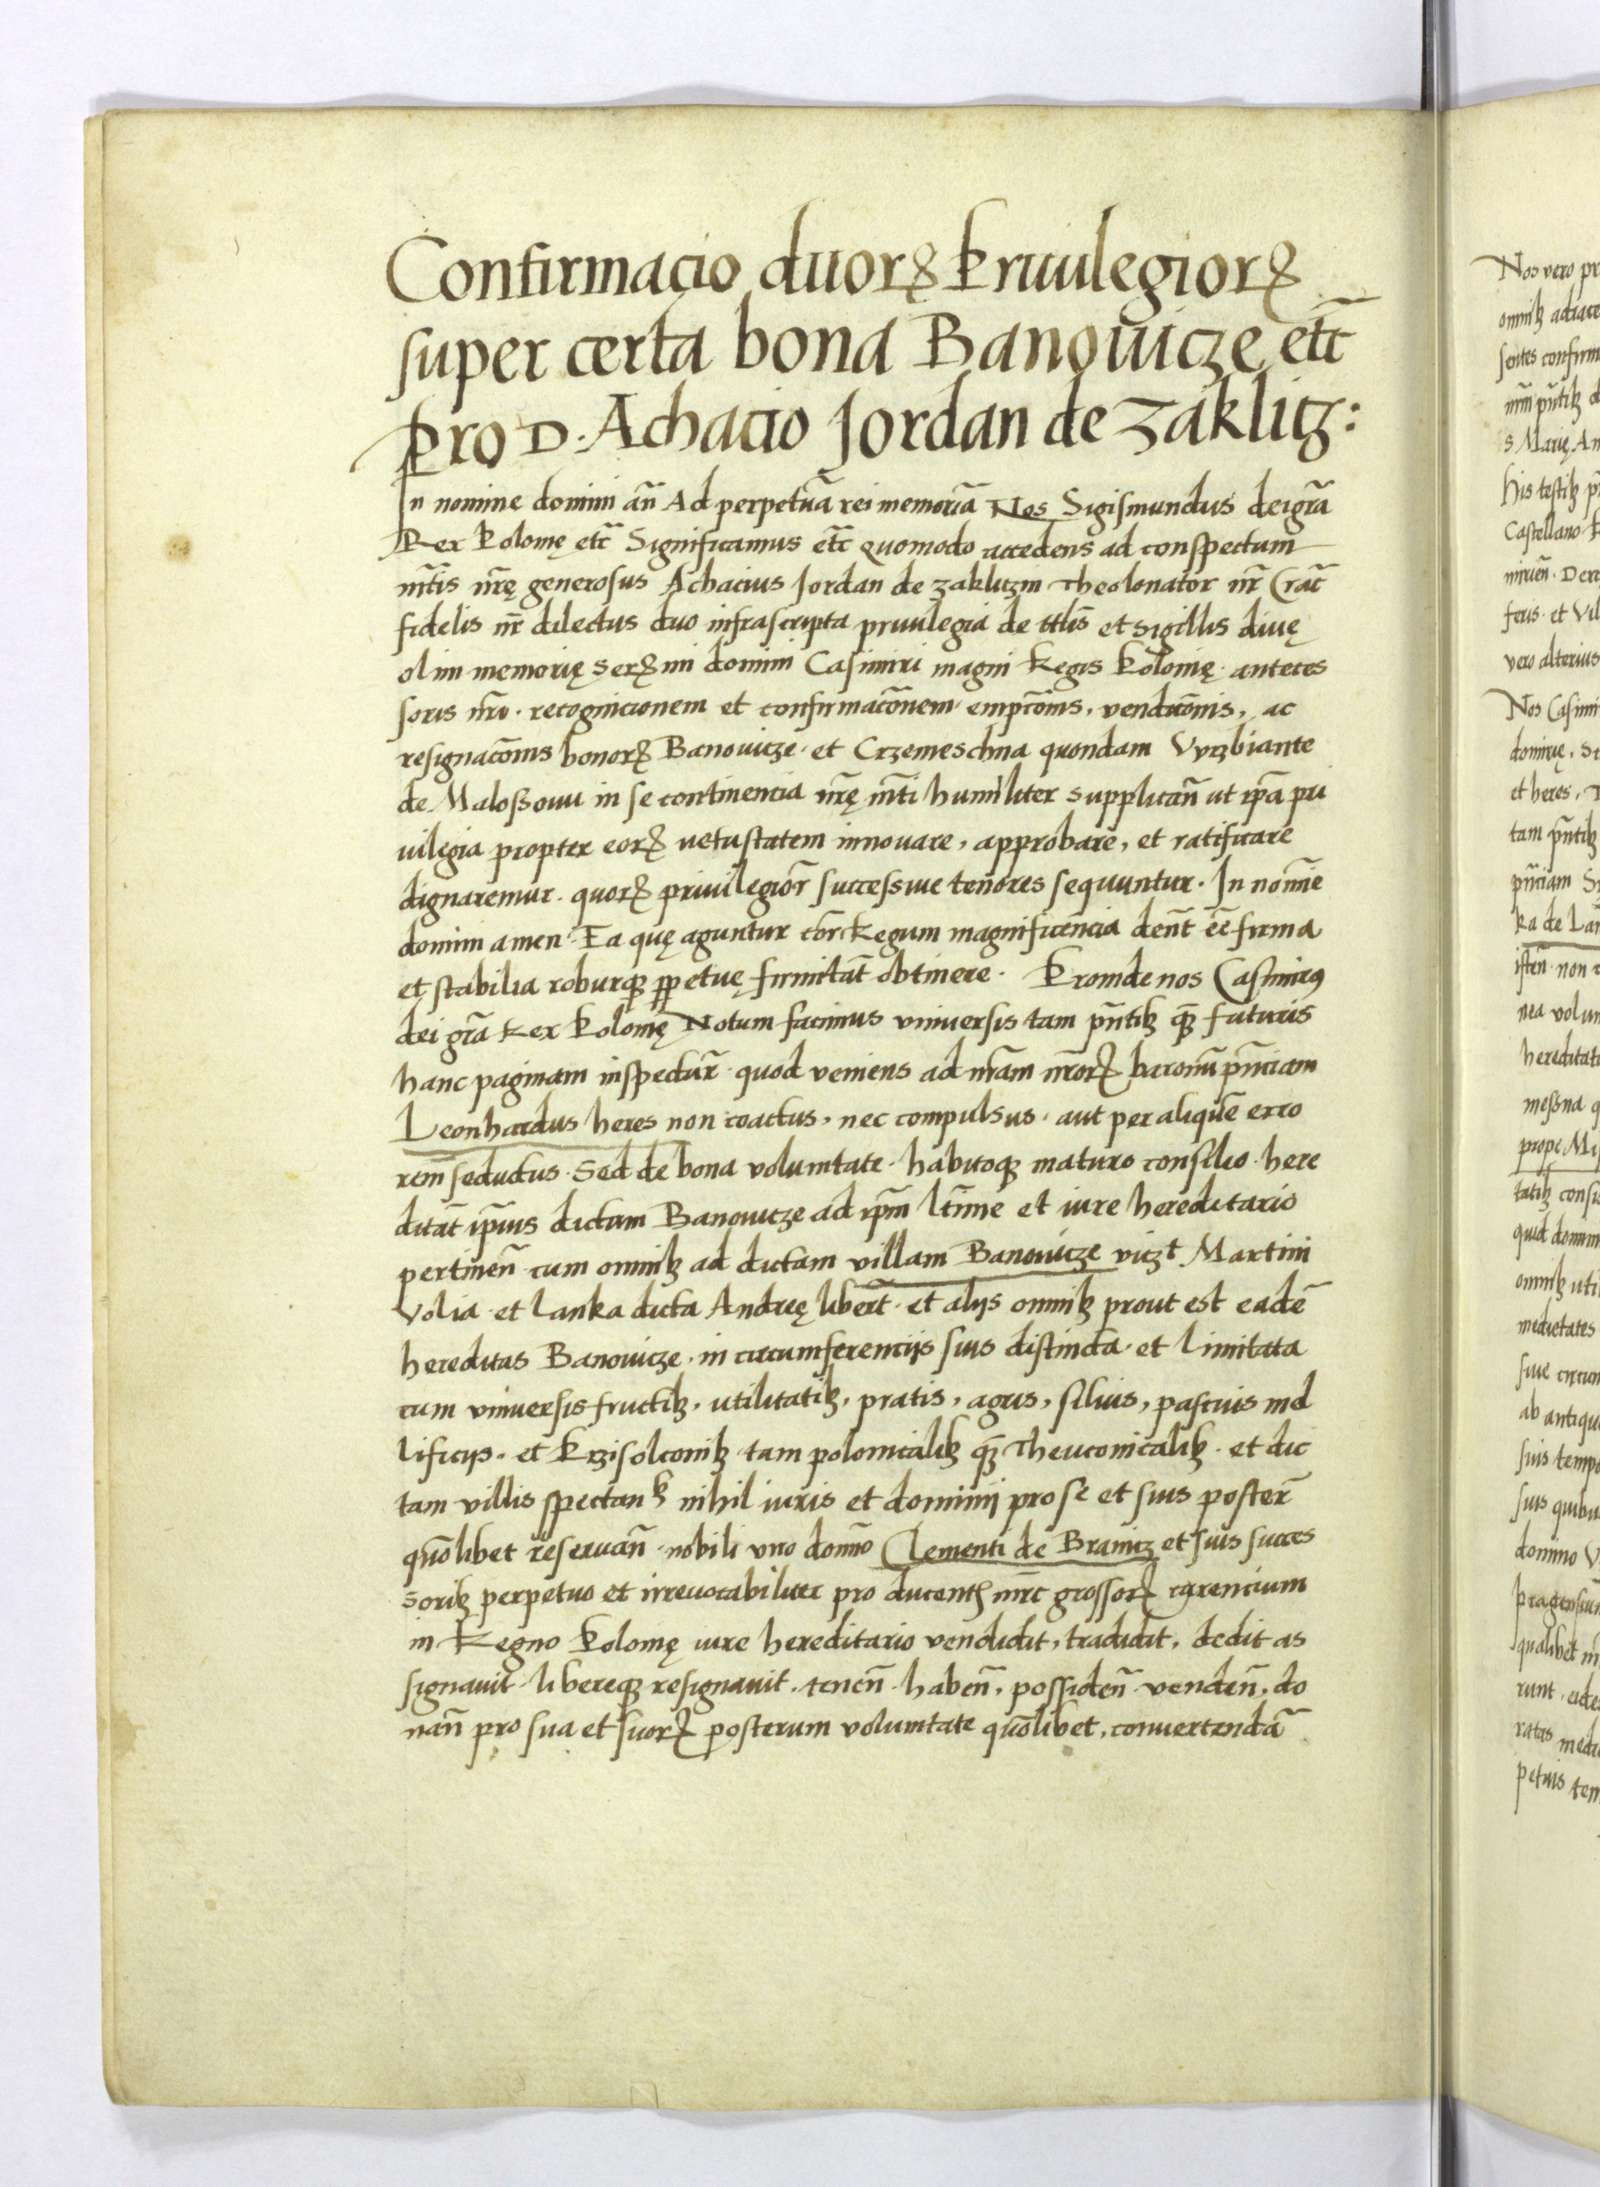 Confirmacio duorꝝ Priuilegiorꝝ
super certa bona Banouicze etc̃
Pro D. Achacio Jordan de Zaklicz:
In nomine domini am̃ Ad perpetuã rei memoriã Nos Sigismundus dei gr̃a
Rex Polonię etc̃ Significamus etc̃ quomodo accedens ad conspectum
mt̃is nr̃ę generosus Achacius Jordan de Zakliczin Theolonator nr̃ Crac̃
fidelis nr̃ dilectus duo infrascripta priuilegia de tt̃lis et sigillis diuę
olim memorię serꝝmi domini Casimiri magni Regis Polonię. anteces
soris nr̃i. recognicionem et confirmacõnem empcõnis, vendicõnis, ac
resignacõnis bonorꝝ Banouicze. et Crzemeschna quondam Vyrzbiante
de Maloßouu in se continencia nr̃ę mt̃i humiliter supplicañ ut ip̃a pri
uilegia propter eorꝝ uetustatem innouare, approbare, et ratificare
dignaremur. quorꝝ priuilegior̃ successiue tenores sequuntur. In nom̃ie
domini amen. Ea quę aguntur cor̃ Regum magnificencia deñt eẽ firma
et stabilia roburqꝫ ꝑpetuę firmitat̃ obtinere. Proinde nos Casimirꝰ
dei gr̃a Rex Polonię Notum facimus vniuersis tam pñtibꝫ qꝫ̃ futuris
hanc paginam inspectur̃. quod veniens ad nr̃am nr̃orꝝ baronũ pñciam
Leonhardus heres non coactus, nec compulsus. aut per aliquẽ erro
rem̃ seductus. Sed de bona voluntate. habitoqꝫ maturo consilio. here
ditat̃ ip̃ius dictam Banouicze ad ip̃m l̃time et iure hereditario
pertineñ cum omnibꝫ ad dictam villam Banouicze viczt Martini
Volia. et Lanka dicta Andreę libert̃. et alijs omnibꝫ prout est eadẽ
hereditas Banouicze. in circumferencijs suis distincta. et limitata
cum vniuersis fructibꝫ, utilitatibꝫ, pratis, agris, siluis, pascuis mel
lificijs. et Przisolconibꝫ tam polonicalibꝫ qꝫ̃ Theuconicalibꝫ. et dic
tam villis spectan nihil iuris et dominij pro se et suis poster̃
quõlibet reseruañ. nobili viro domño Clementi de Branicz et suis succes
soribꝫ perpetuo et irreuocabiliter pro ducentis mrc̃ grossorꝝ currencium
in Regno Polonię iure hereditario vendidit, tradidit, dedit as
signauit. libereqꝫ resignauit. teneñ. habeñ, possideñ. vendeñ, do
nañ pro sua et suorꝝ posterum voluntate quõlibet, conuertendã
Nos vero
omnibꝫ
pñtibꝫ
S. Marię
His testibꝫ
Castellano
et Vil
vero alterius
Nos Casimi
et heres,
tam pñtibꝫ
pñciam
ka de
non
nea volun
hereditat
meßna
prope
tatibꝫ
quid
omnibꝫ uti
medietates
siue
ab antiqu
suis temp
suis quibu
domino
qualibet
runt
ratas
petuis